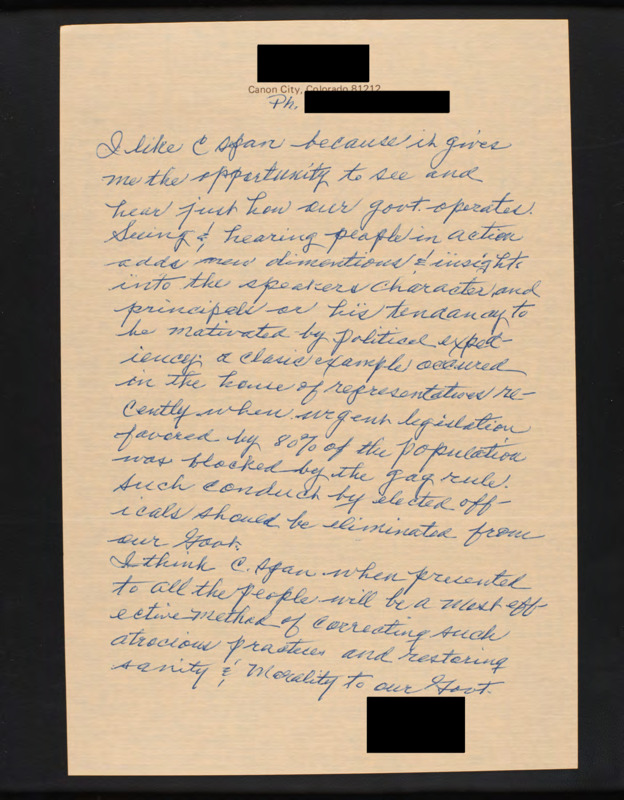 Canon City, Colorado 81212
Ph.
I like C span because it gives
me the opportunity to see and
hear just how our govt. operates.
Seeing & hearing people in action
adds new dimentions & insights
into the speakers character and
principals or his tendancy to
be motivated by political exped-
iency. a clasic example occured
in the house of representatives re-
cently when urgent legislation
favored by 80% of the population
was blocked by the gag rule.
Such conduct by elected off-
icals should be eliminated from
our Govt.
I think C. span when presented
to all the people will be a most eff-
ective method of correcting such
atrocious practices and restoring
sanity & Morality to our Govt.